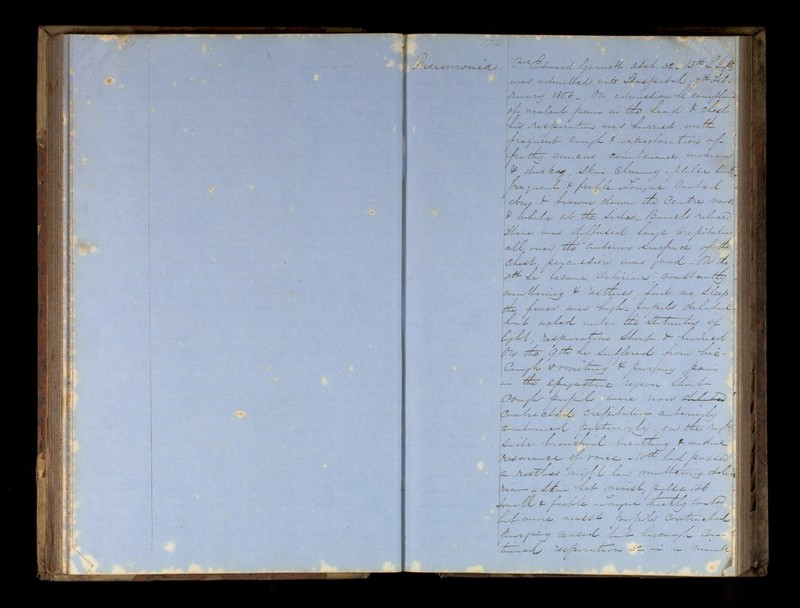 Pneumonia
Edward Garnett 13th L.
was admitted into Hospital 7th Feb
ruary 1850 - On admission he complain
of violent pain in the head & chest
his respiration was hurried with
frequent cough & expectoration of
frothy mucus countenance
& dusky. Skin Clammy - Pulse
frequent & feeble - Tongue Coated
dry & brown down the Centre
& white at the sides - Bowels relaxed
There was diffused large crepitation
all over the anterior surface of the
Chest, percussion was good - On the
8th he became delirious, constantly
muttering & restless, had no sleep
the fever was high - pupils dilated
but acted under the stimulus of
light, respiration short & hurried
On the 9th he suffered from hic-
Cough vomiting & purging pain
in the epigastric region short
cough pupils were now
contracted crepitation anteriorly
continued posteriorly - on the right
side bronchial breathing & undue
resonance of voice - 10th had passed
a restless night low muttering deli
rium - Skin moist, pulse
small & feeble - Tongue thickly coated
but more moist pupils contracted
purging ceased but hiccough con-
tinued respiration 32 in a